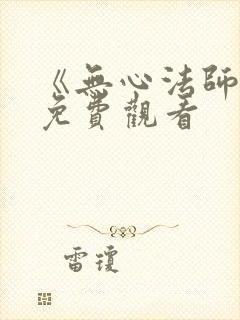 《無心法師
免費觀看
雷瓊